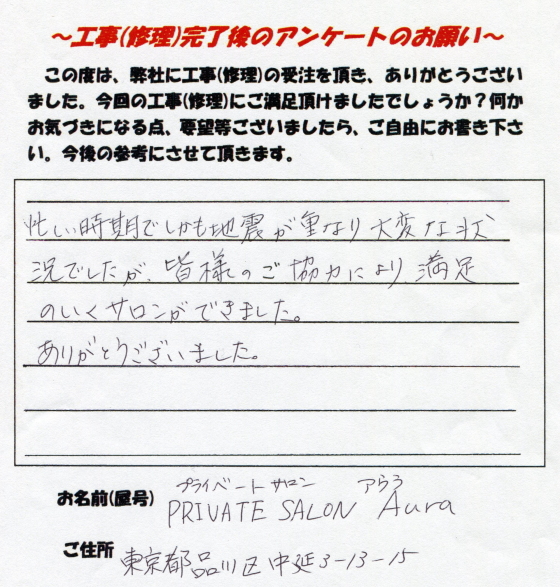 ～工事(修理)完了後のアンケートのお願い～
この度は、弊社に工事(修理)の受注を頂き、ありがとうござい
ました。今回の工事(修理)にご満足頂けましたでしょうか？何か
お気づきになる点、要望等ございましたら、ご自由にお書き下さ
い。今後の参考にさせて頂きます。
忙しい時期でしかも地震が重なり大変な状
況でしたが、皆様のご協力により、満足
のいくサロンができました。
ありがとうございました。
プライベートサロン アウラ
お名前(屋号) PRIVATE SALON Aura
ご住所 東京都品川区中延3-13-15